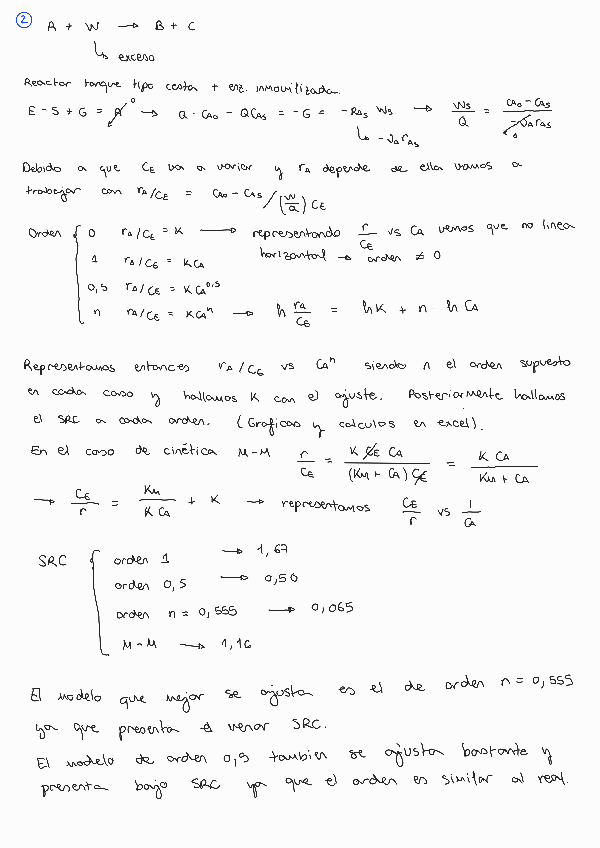 2 A + W → B + C
↳ exceso
Reactor tanque tipo cesta + enz. inmovilizada.
E - S + G = A⁰ → Q · CA0 - Q CAS = -G = -RAS WS → WS/Q = (CA0 - CAS)/(-νA rAS)
↳ -νA rAS
Debido a que CE va a variar y rA depende de ella vamos a
trabajar con rA/CE = CA0 - CAS / (W/Q) CE
Orden { 0 rA/CE = K → representando r/CE vs CA vemos que no linea
horizontal → orden ≠ 0
1 rA/CE = K CA
0,5 rA/CE = K CA^0,5
n rA/CE = K CA^n → ln rA/CE = ln K + n ln CA
Representamos entonces rA/CE vs CA^n siendo n el orden supuesto
en cada caso y hallamos K con el ajuste. Posteriormente hallamos
el SRC a cada orden. (Graficas y calculos en excel).
En el caso de cinética M-M r/CE = K CE CA / (KM + CA) CE = K CA / KM + CA
→ CE/r = KM / K CA + K → representamos CE/r vs 1/CA
SRC { orden 1 → 1,67
orden 0,5 → 0,50
orden n = 0,555 → 0,065
M-M → 1,16
El modelo que mejor se ajusta es el de orden n = 0,555
ya que presenta el menor SRC.
El modelo de orden 0,5 tambien se ajusta bastante y
presenta bajo SRC ya que el orden es similar al real.